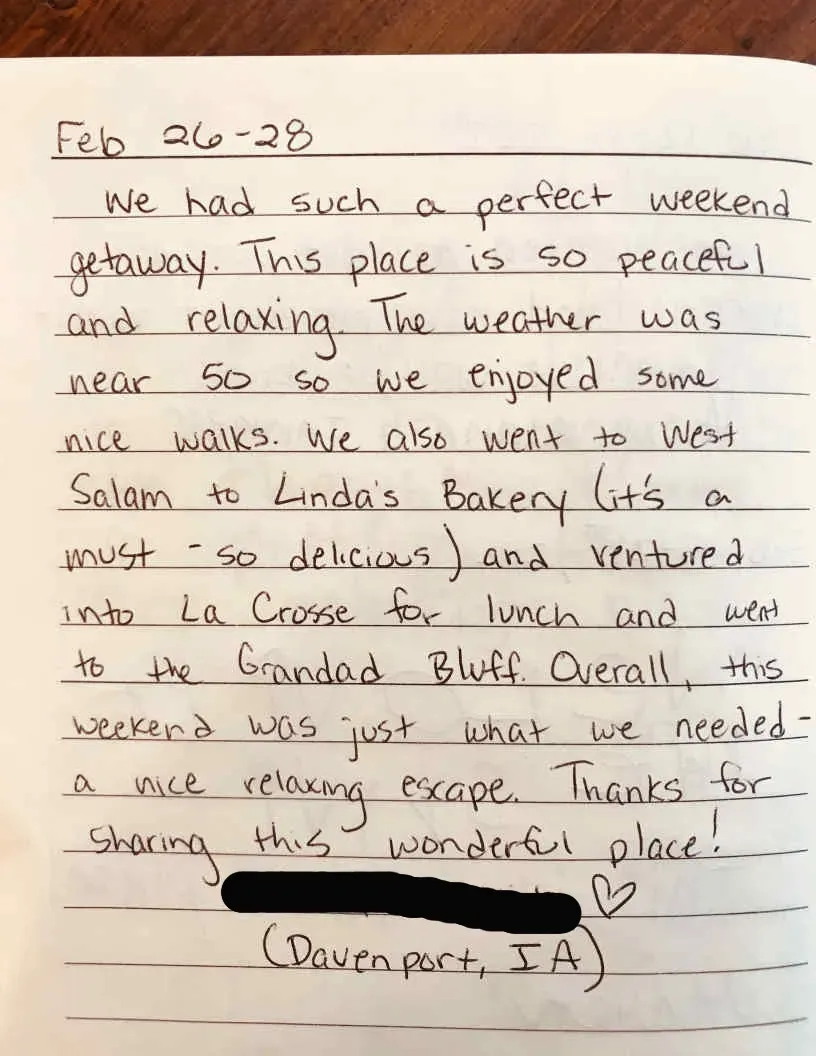 Feb 26-28
We had such a perfect weekend
getaway. This place is so peaceful
and relaxing. The weather was
near 50 so we enjoyed some
nice walks. We also went to West
Salam to Linda's Bakery (it's a
must - so delicious) and ventured
into La Crosse for lunch and went
to the Grandad Bluff. Overall, this
weekend was just what we needed-
a nice relaxing escape. Thanks for
sharing this wonderful place!
♡
(Davenport, IA)